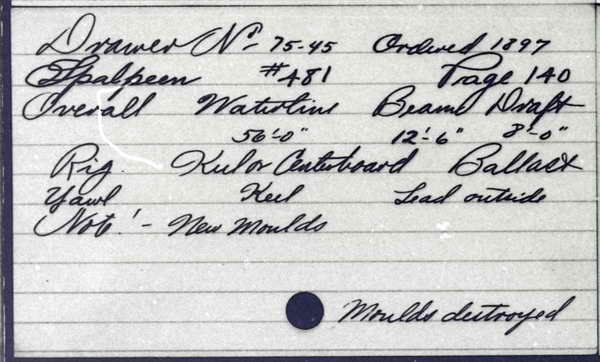 Drawer No 75-45 Ordered 1897
Spalpeen #481 Page 140
Overall Waterline Beam Draft
56'-0" 12'-6" 8'-0"
Rig. Keel or Centerboard Ballast
Yawl Keel Lead outside
Note:- New Moulds
Moulds destroyed